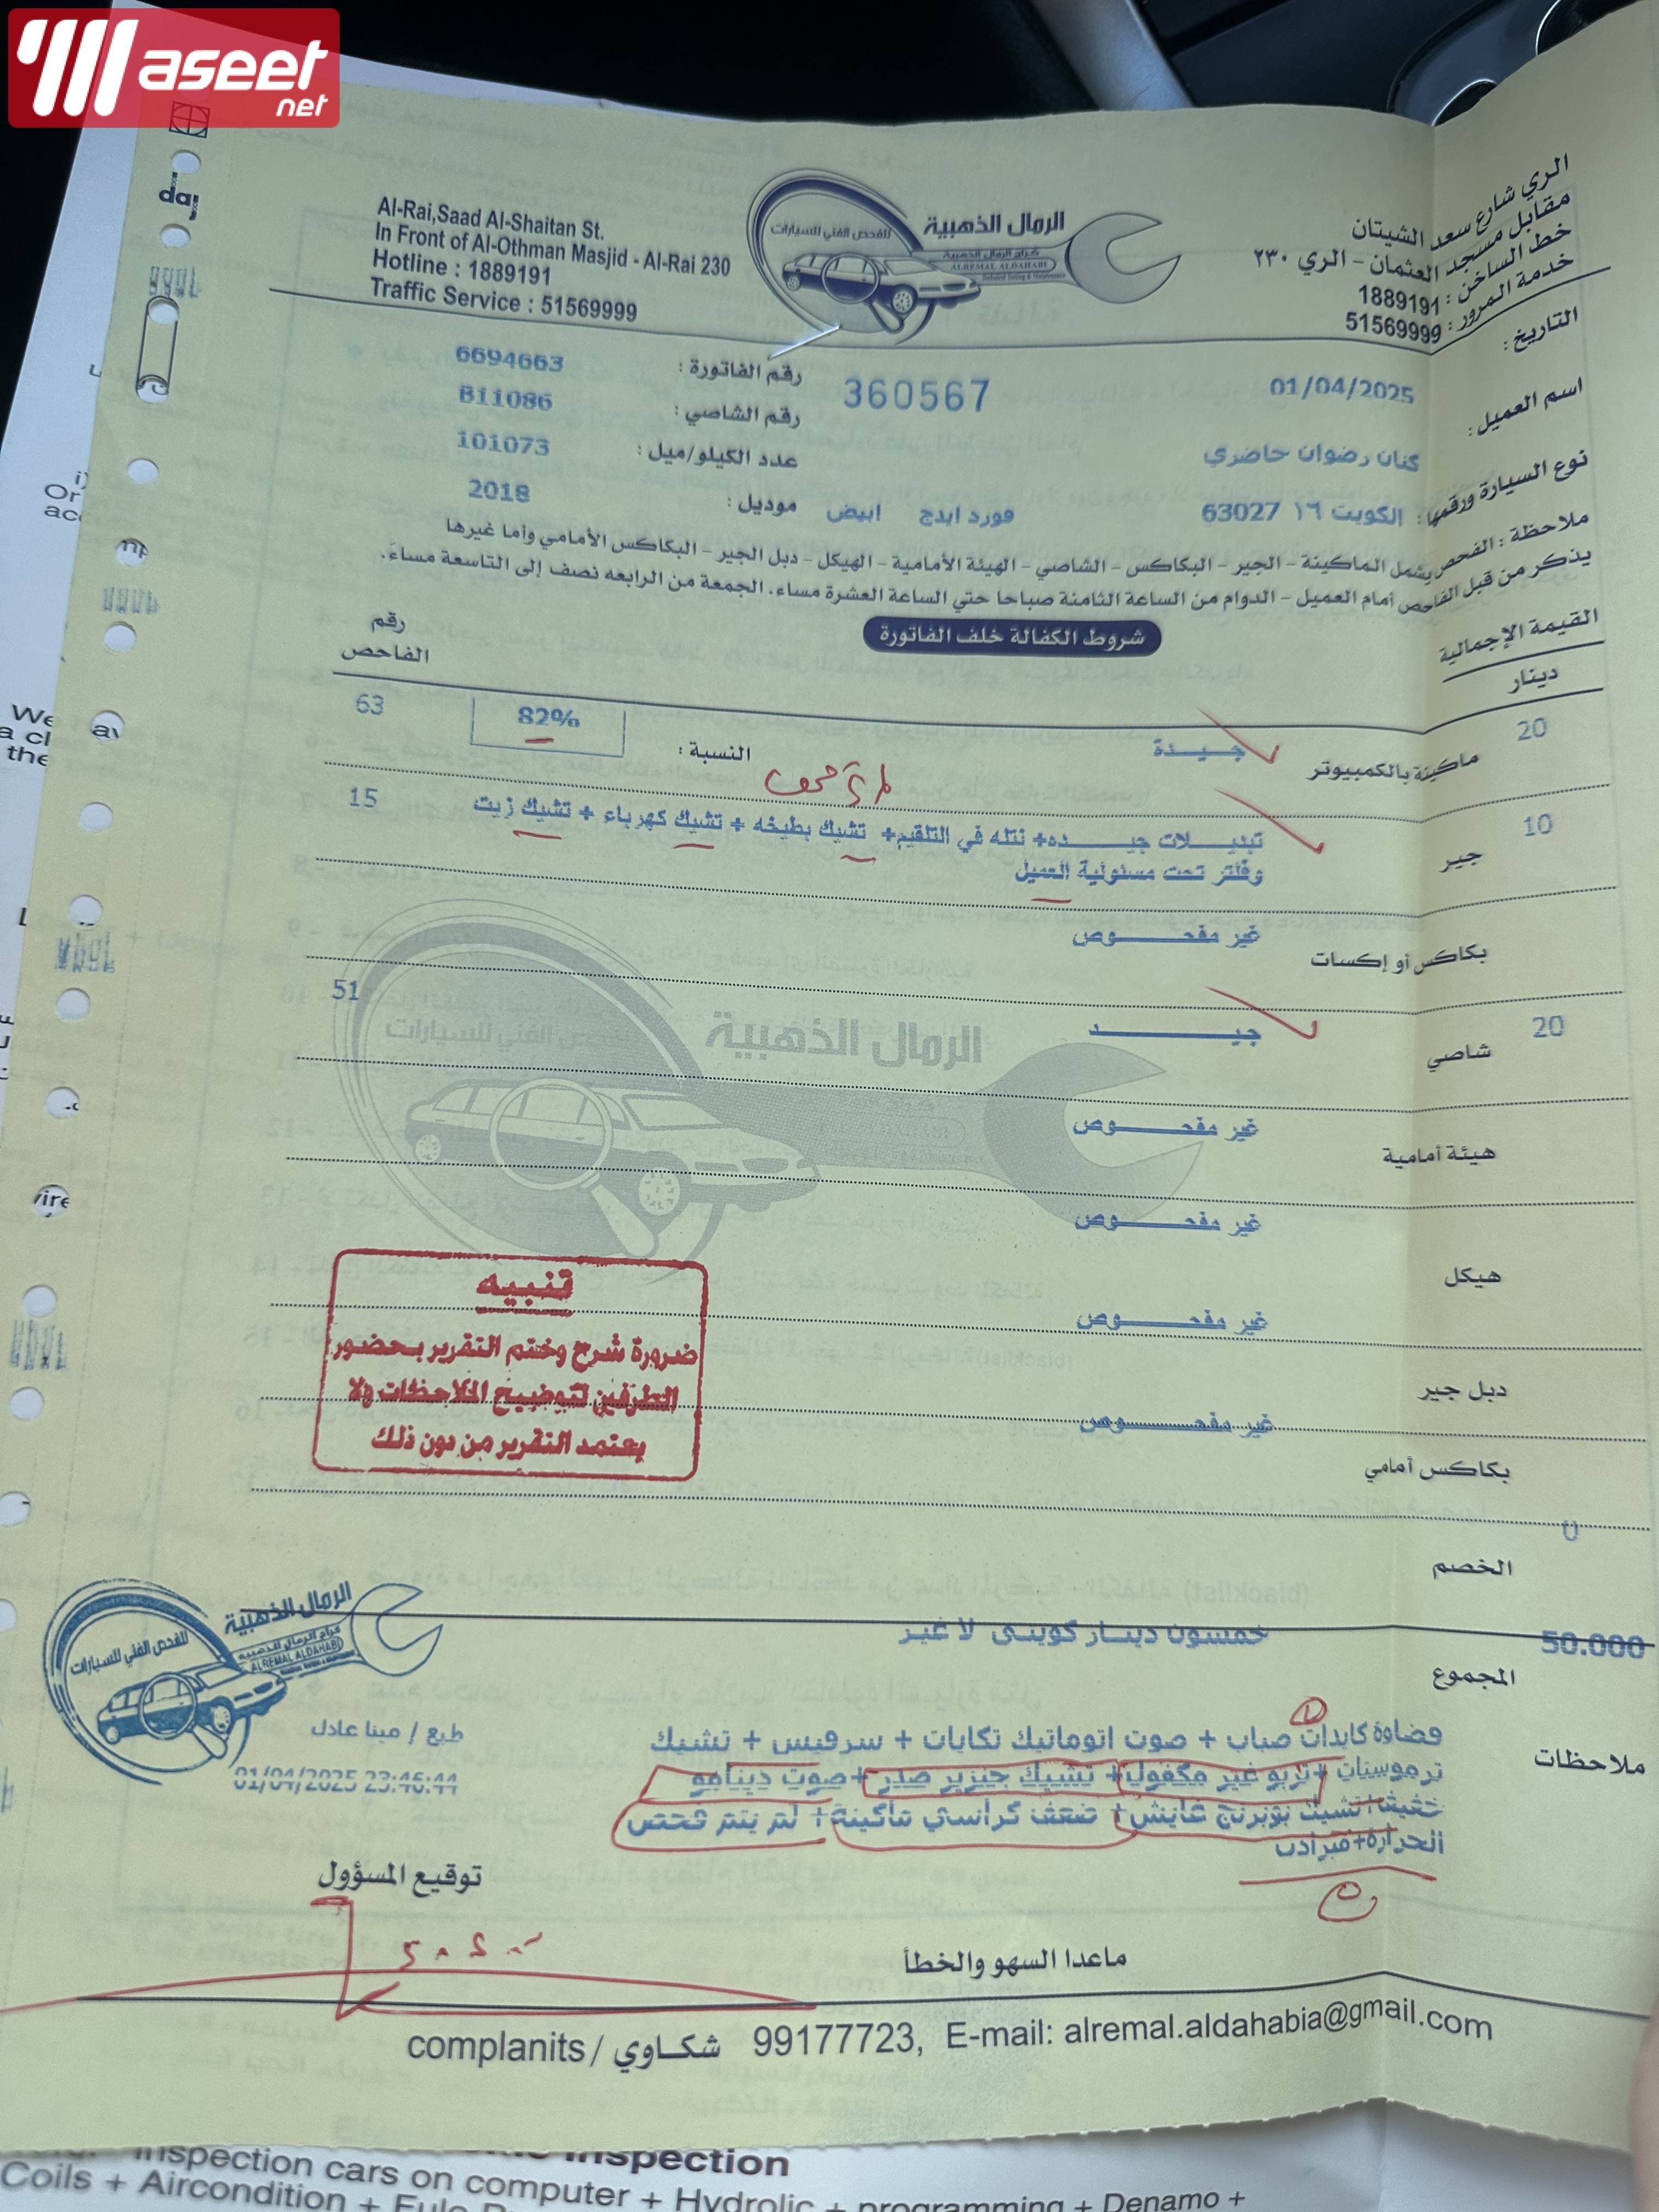 Maseet
net
Al-Rai,Saad Al-Shaitan St.
In Front of Al-Othman Masjid - Al-Rai 230
Hotline : 1889191
Traffic Service : 51569999
الرمال الذهبية
للفحص الفني للسيارات
كراج الرمال الذهبية
ALREMAL ALDAHABI
الري شارع سعد الشيتان
مقابل مسجد العثمان - الري ٢٣٠
خط الساخن : 1889191
خدمة المرور : 51569999
التاريخ : 01/04/2025
360567
رقم الفاتورة : 6694663
اسم العميل : كنان رضوان حاضري
رقم الشاصي : B11086
عدد الكيلو/ميل : 101073
نوع السيارة ورقمها : الكويت ١٦ 63027 فورد ايدج ابيض
موديل : 2018
ملاحظة : الفحص يشمل الماكينة - الجير - البكاكس - الشاصي - الهيئة الأمامية - الهيكل - دبل الجير - البكاكس الأمامي وأما غيرها
يذكر من قبل الفاحص أمام العميل - الدوام من الساعة الثامنة صباحا حتي الساعة العشرة مساء. الجمعة من الرابعه نصف إلى التاسعة مساءً.
شروط الكفالة خلف الفاتورة
القيمة الإجمالية
دينار
رقم
الفاحص
20 ماكينة بالكمبيوتر جيـــدة النسبة : 82% 63
10 جير تبديـــلات جيـــده+ نتله في التلقيم+ تشيك بطيخه + تشيك كهرباء + تشيك زيت 15
وفلتر تحت مسئولية العميل
بكاكس أو إكسات غير مفحـــوص
20 شاصي جيـــد 51
هيئة أمامية غير مفحـــوص
هيكل غير مفحـــوص
دبل جير غير مفحـــوص
بكاكس أمامي غير مفحـــوص
الرمال الذهبية
الفحص الفني للسيارات
تنبيه
ضرورة شرح وختم التقرير بحضور
الطرفين لتوضيح الملاحظات ولا
يعتمد التقرير من دون ذلك
0
الخصم
50.000
المجموع
خمسون دينـار كويتى لا غيـر
ملاحظات
فضاوة كابدات صباب + صوت اتوماتيك تكايات + سرفيس + تشيك
ترموستات +تربو غير مكفول+ تشييك جنزير صدر +صوت دينامو
خفيف+تشيك بوبرنج غايش+ ضعف كراسي ماكينة+ لم يتم فحص
الحرارة+مبرادت
الرمال الذهبية
للفحص الفني للسيارات
كراج الرمال الذهبية
ALREMAL ALDAHABI
طبع / مينا عادل
01/04/2025 23:46:44
توقيع المسؤول
ماعدا السهو والخطأ
complanits / شكـاوي 99177723, E-mail: alremal.aldahabia@gmail.com
Inspection
Inspection cars on computer + Hydrolic + programming + Denamo +
Coils + Aircondition +